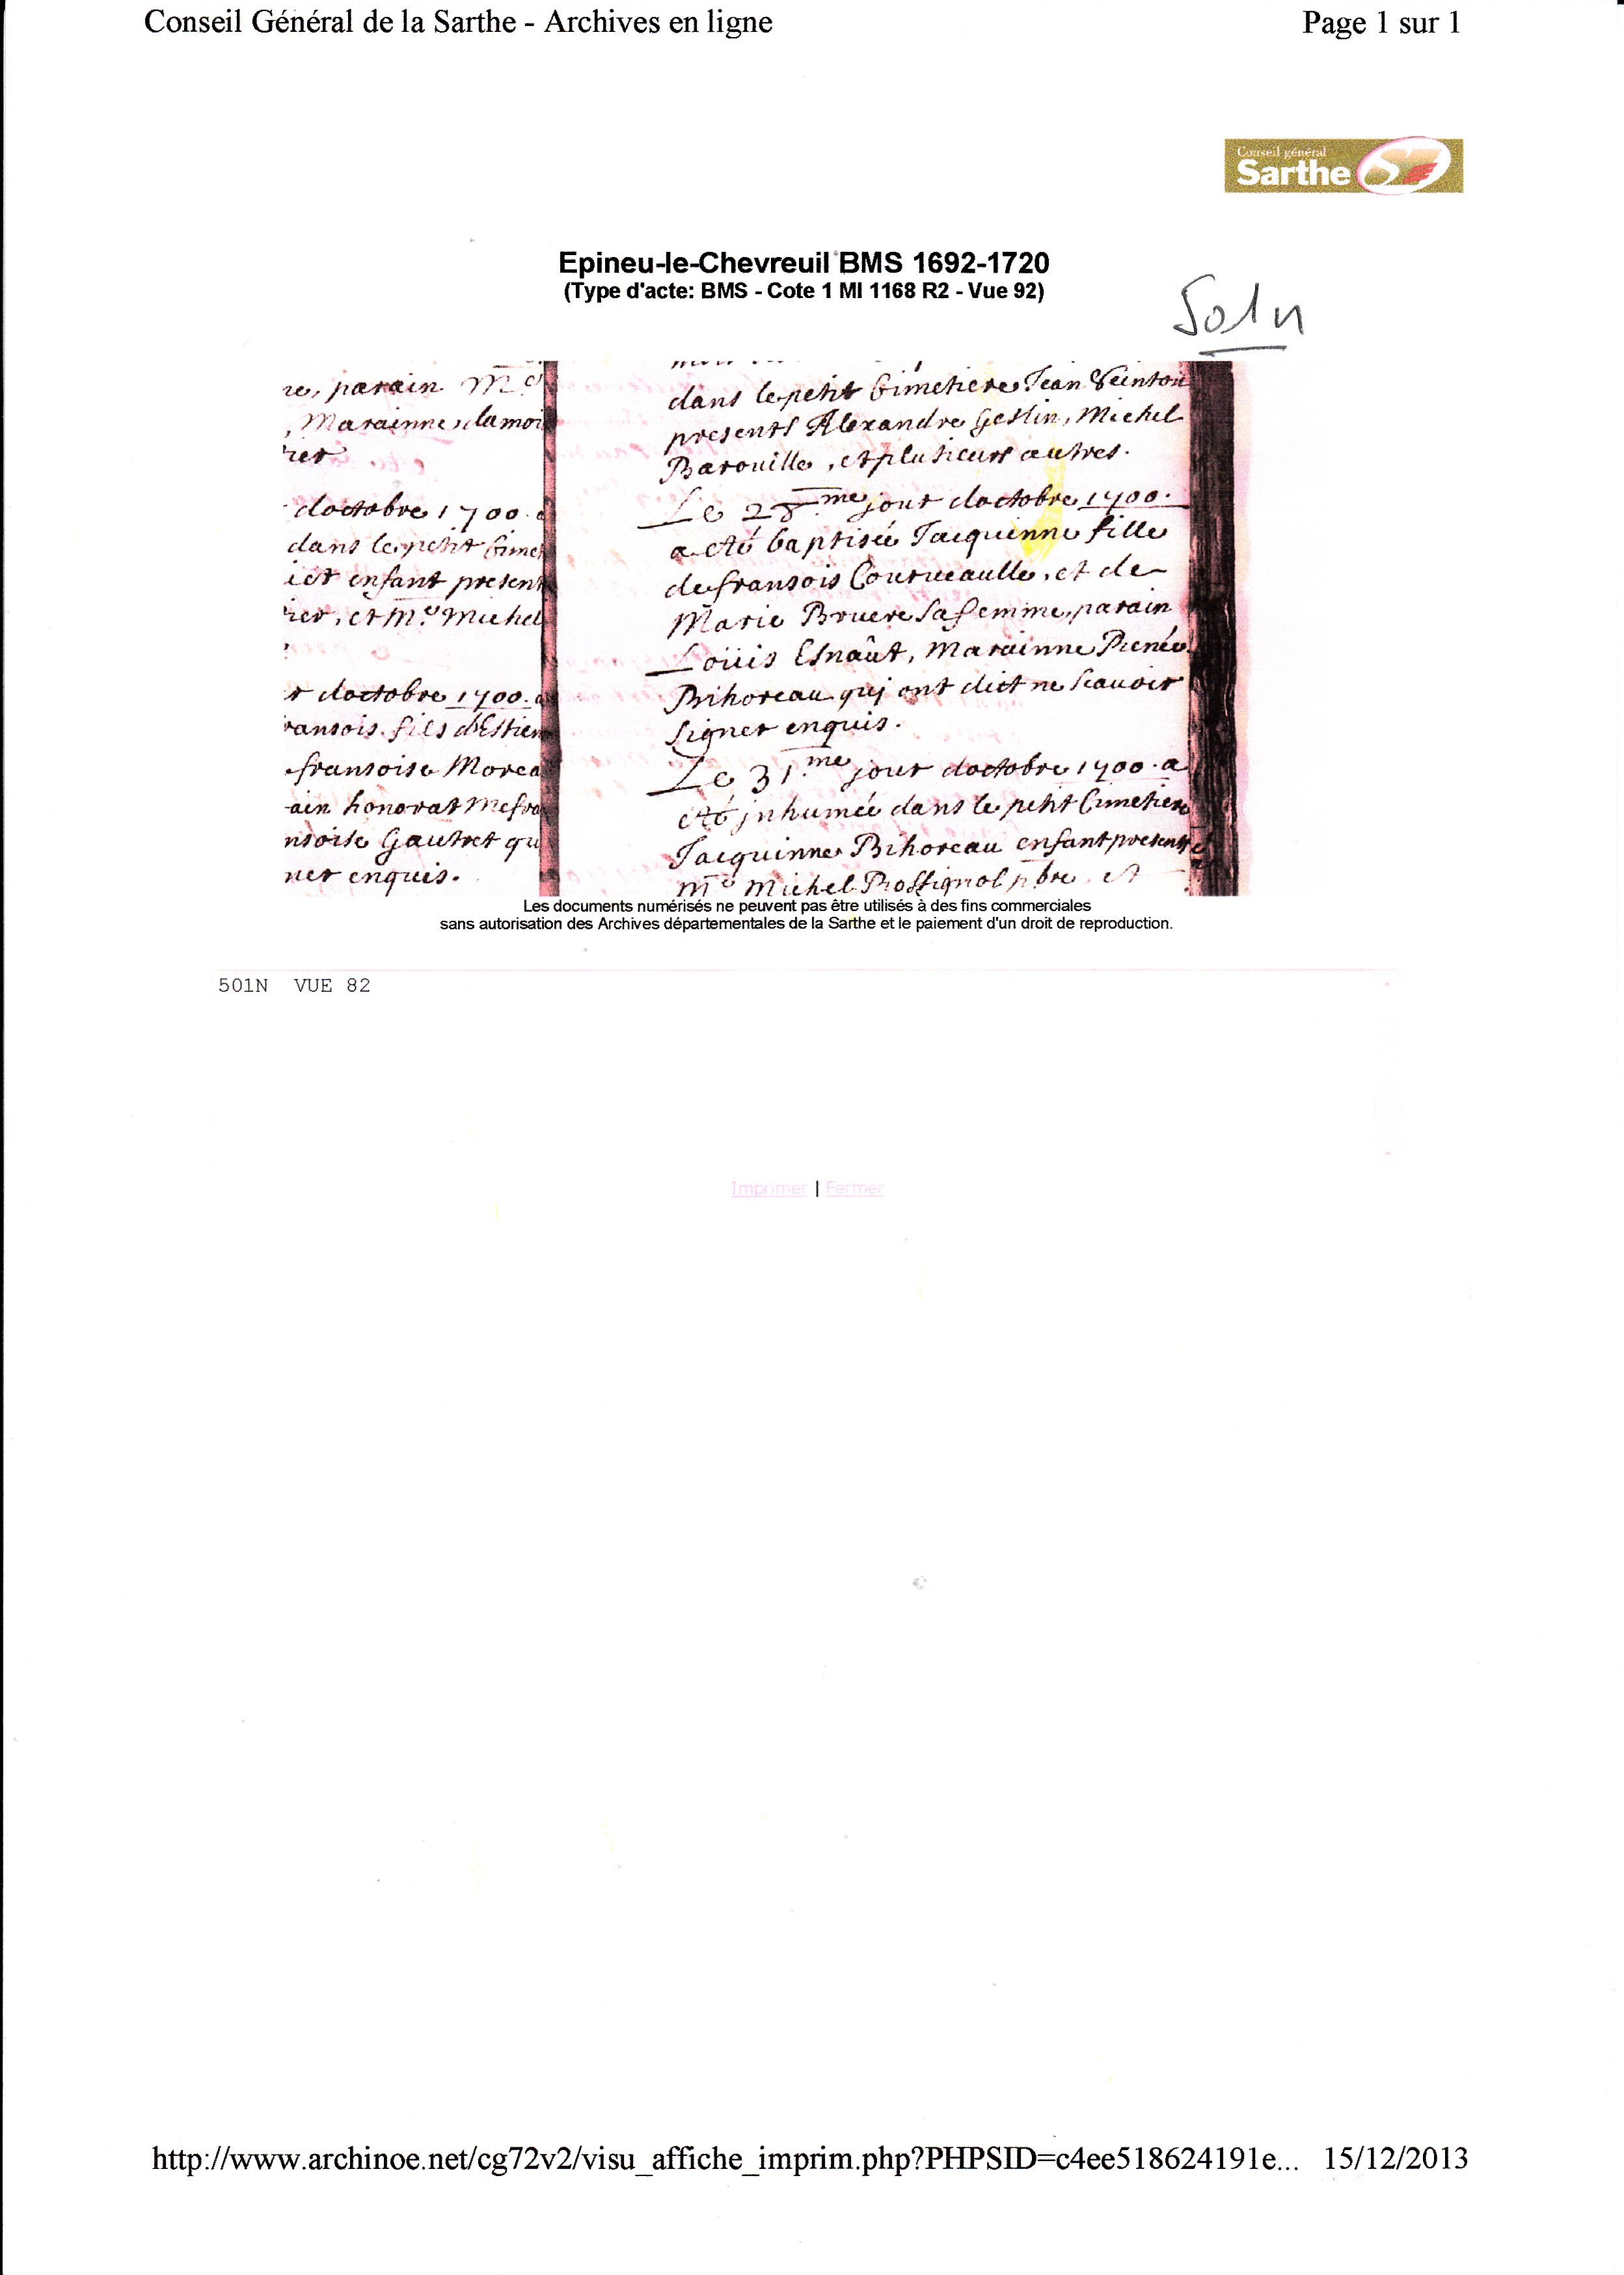 Conseil Général de la Sarthe - Archives en ligne
Page 1 sur 1
Conseil général
Sarthe
Epineu-le-Chevreuil BMS 1692-1720
(Type d'acte: BMS - Cote 1 MI 1168 R2 - Vue 92)
501n
re, parain Me
, Marainne, lamoi
rier
doctobre 1700. a
dans le petit Cimet
iet enfant present
rier, et Me. Michel
r doctobre 1700. a
ransois fils dEstien
fransoise Morea
ain honorat Mefra
nsoise Gautret qu
ner enquis.
dans le petit Cimetiere Jean
presents Alexandre Geslin, Michel
Barouille, et plusieurs autres.
Le 28.me jour doctobre 1700.
a eté baptiseé Jacquenne fille
de fransois Courveaulle, et de
Marie Bruere Sa femme, parain
Loüis Esnaût, Marainne Renéé
Bihoreau qui ont dict ne scauoir
signer enquis.
Le 31.me jour doctobre 1700. a
eté jnhumeé dans le petit Cimetiere
Jacquinne Bihoreau enfant presents
Me Michel Rossignol pbre, et
Les documents numérisés ne peuvent pas être utilisés à des fins commerciales
sans autorisation des Archives départementales de la Sarthe et le paiement d'un droit de reproduction.
501N VUE 82
Imprimer | Fermer
http://www.archinoe.net/cg72v2/visu_affiche_imprim.php?PHPSID=c4ee518624191e... 15/12/2013